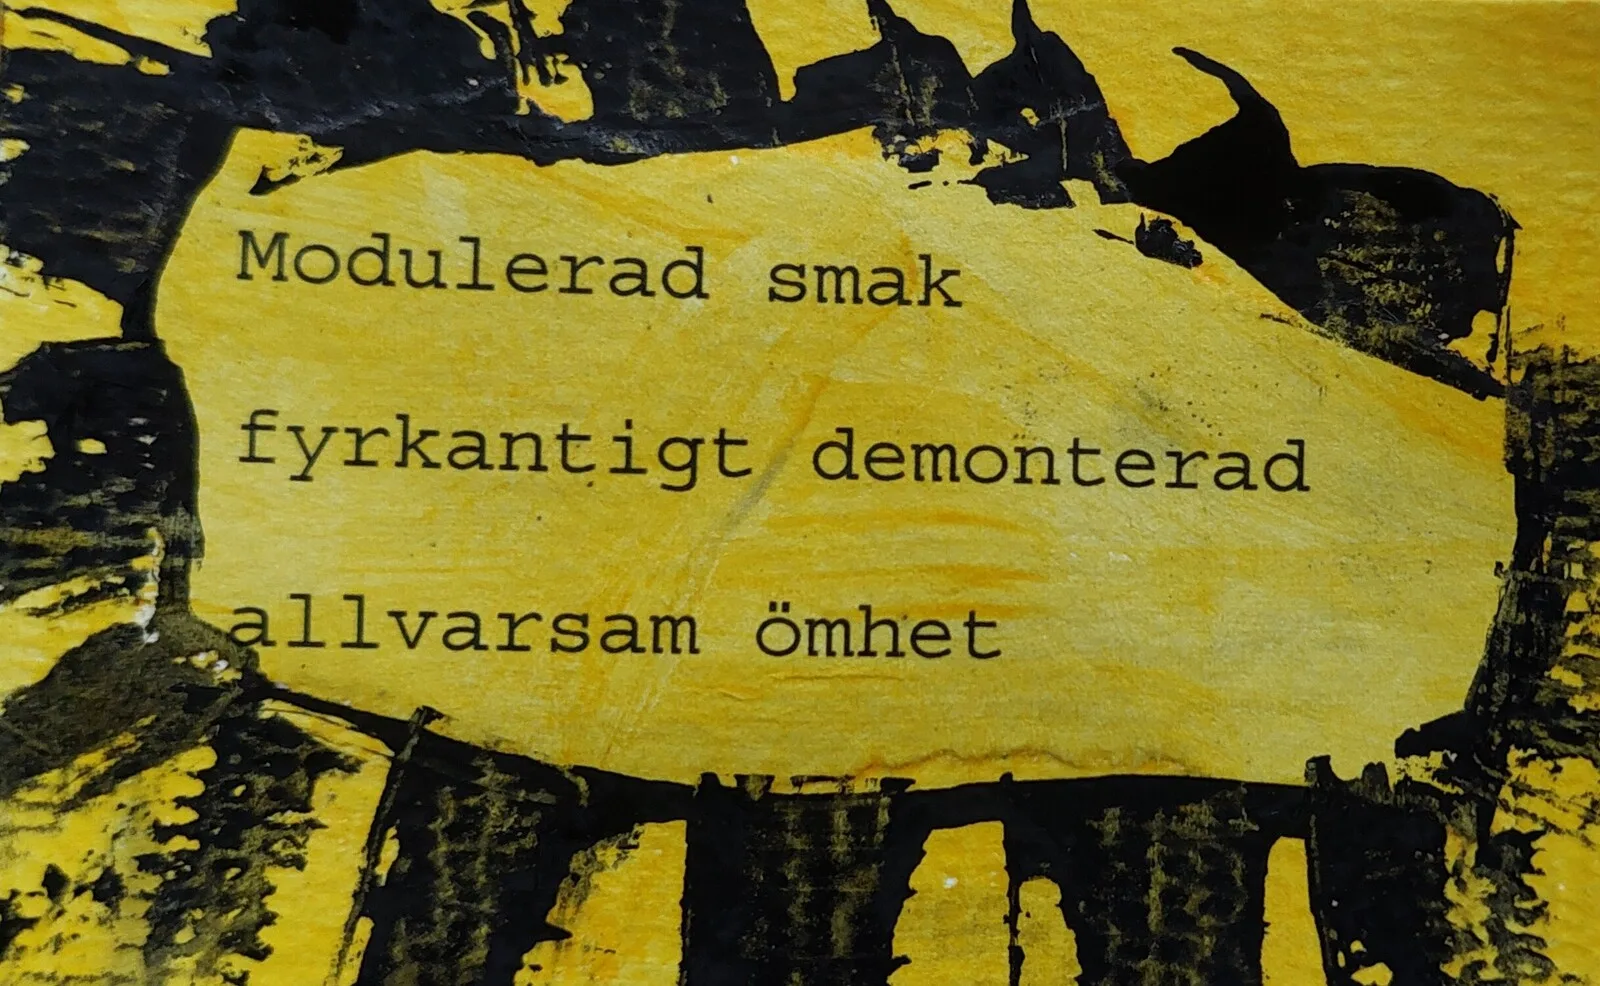 Modulerad smak
fyrkantigt demonterad
allvarsam ömhet